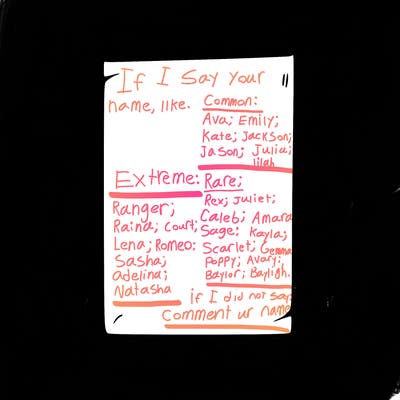 If I Say Your
name, like.
Common:
Ava; Emily;
Kate; Jackson;
Jason; Julia;
lilah
Extreme:
Ranger;
Raina; Court;
Lena; Romeo:
Sasha;
adelina;
Natasha
Rare;
Rex; Juliet;
Caleb; Amara
Sage: Kayla;
Scarlet; Gemma
Poppy; Avary:
Baylor; Bayligh.
if I did not say
Comment ur name